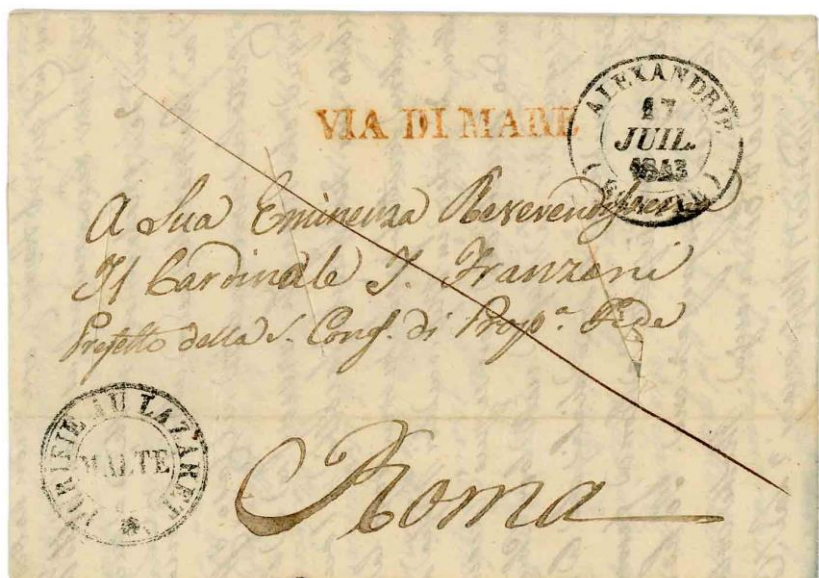 VIA DI MARE
ALEXANDRIE
27
JUIL.
1843
(EGYPTE)
A Sua Eminenza Reverendissima
Il Cardinale J. Franzoni
Prefetto della S. Cong. di Propª. Fide
PURIFIE AU LAZARET
MALTE
Roma